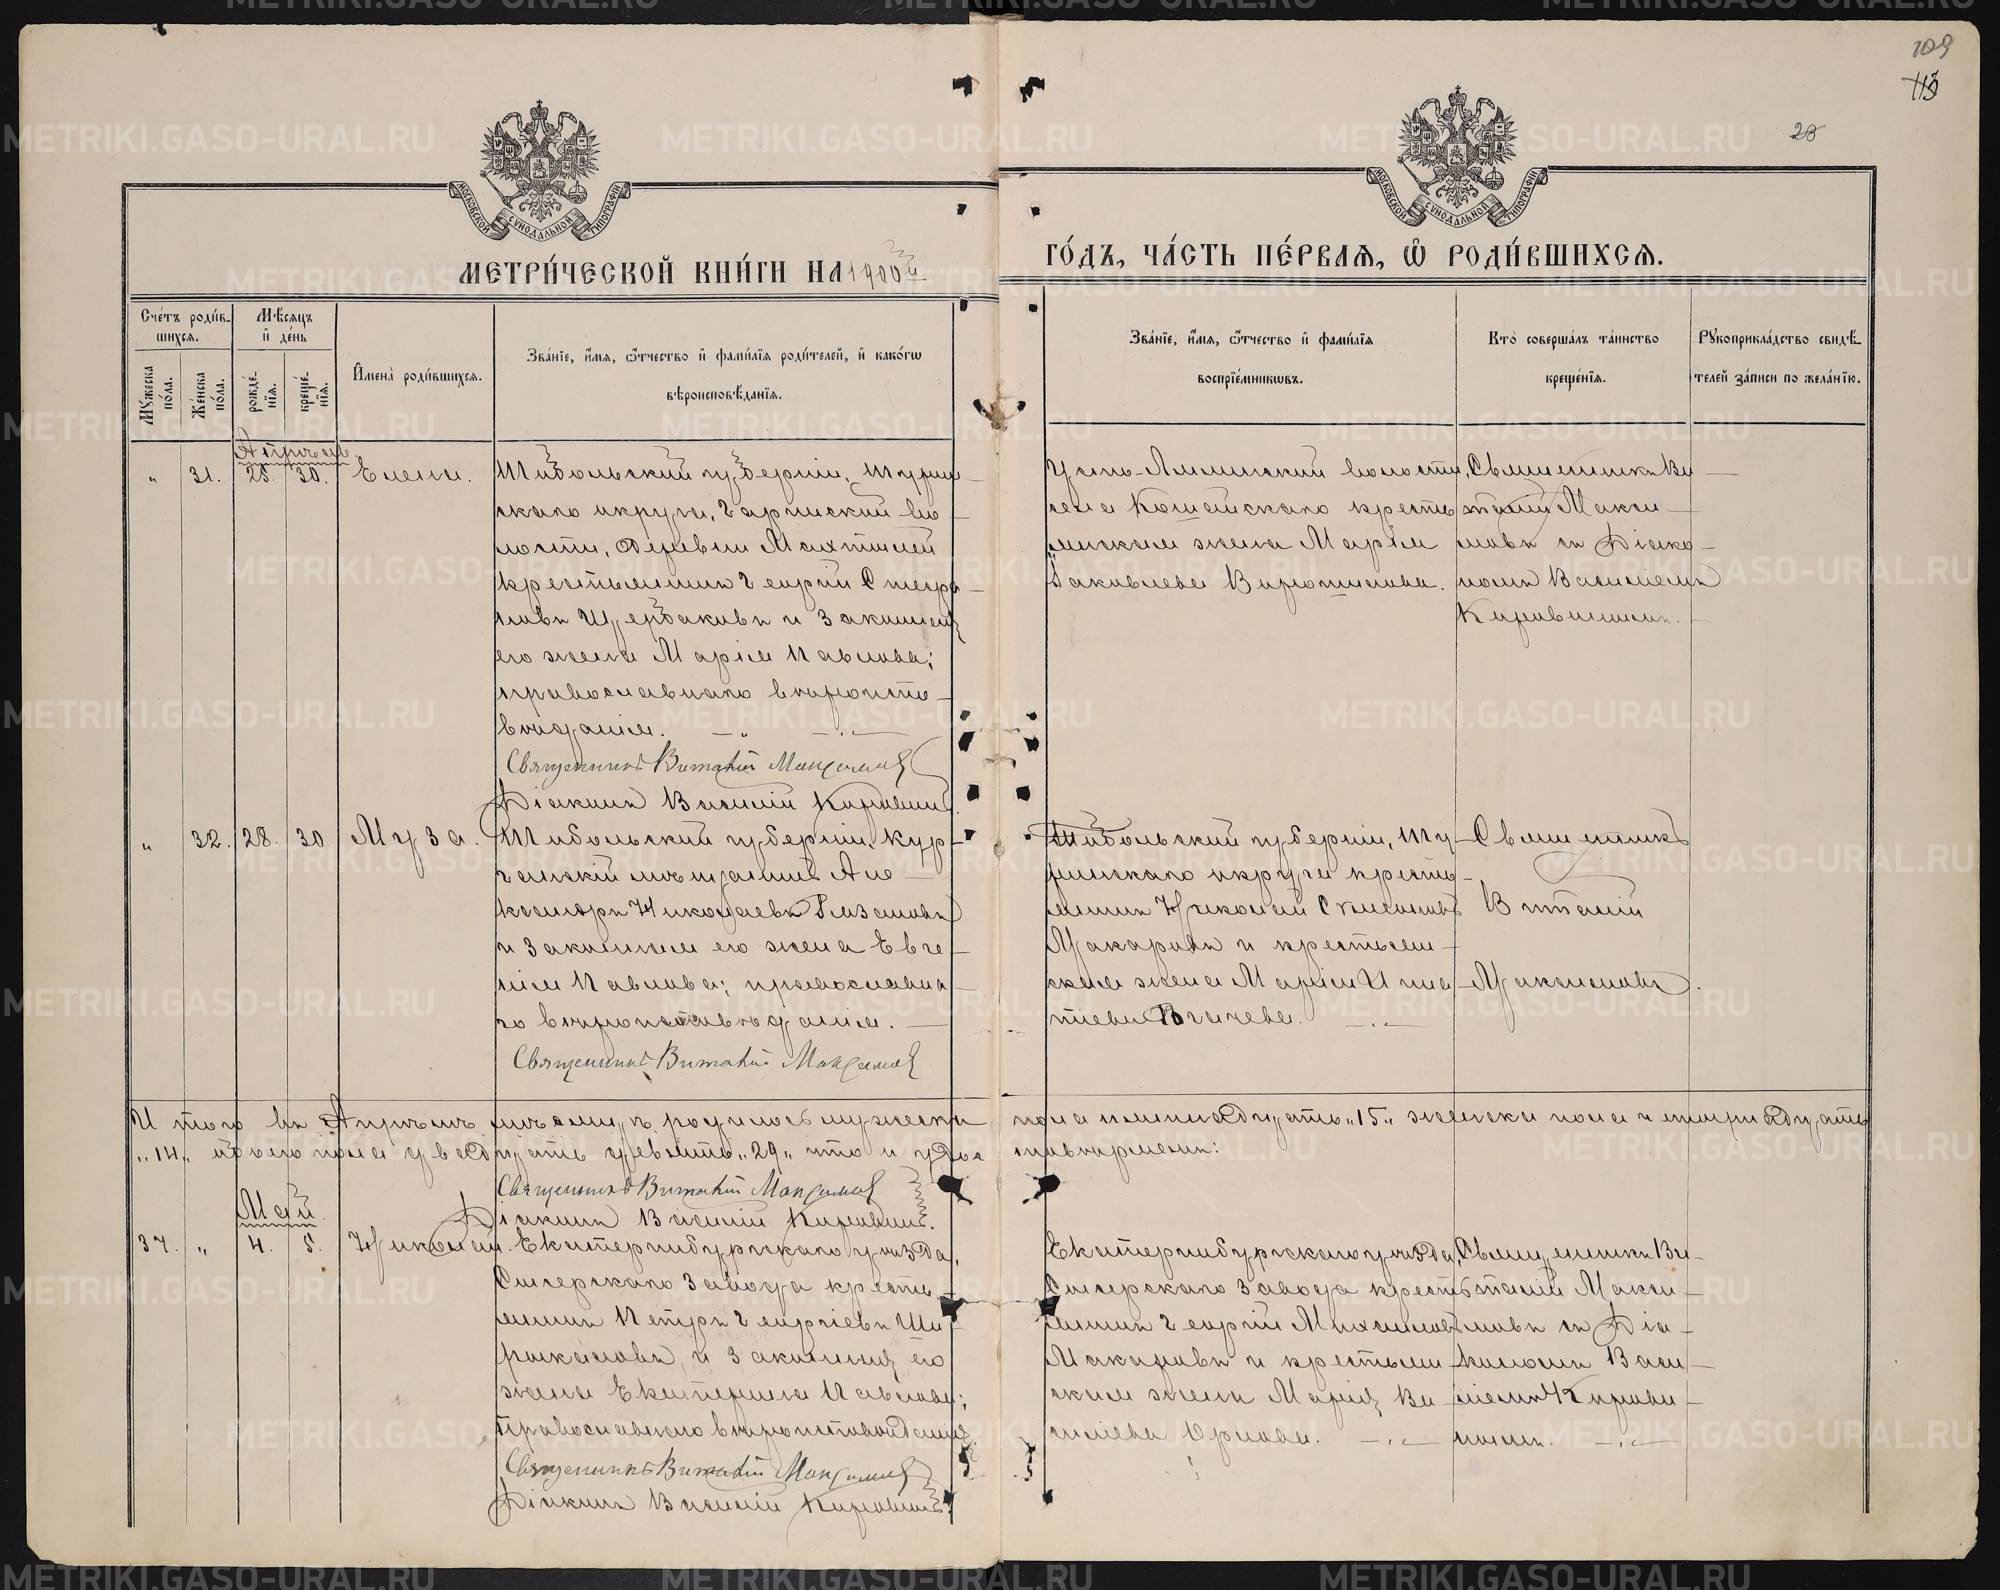 109
113
28
МОСКОВСКОЙ СѴНОДАЛЬНОЙ ТИПОГРАФІИ
МОСКОВСКОЙ СѴНОДАЛЬНОЙ ТИПОГРАФІИ
МЕТРИ́ЧЕСКОЙ КНИ́ГИ НА 1900й
ГО́ДЪ, ЧА́СТЬ ПЕ́РВАЯ, Ѡ РОДИ́ВШИХСЯ.
Сче́тъ роди́вшихся.
Му́жеска по́ла.
Же́нска по́ла.
Мѣ́сяцъ и де́нь
рожде́нїя.
креще́нїя.
Имена̀ роди́вшихся.
Зва́нїе, и́мя, о́тчество и фами́лїя роди́телей, и како́гѡ
вѣроисповѣ́данїя.
Зва́нїе, и́мя, о́тчество и фами́лїя
воспрїе́мникѡвъ.
Кто̀ соверша́лъ та́инство
креще́нїя.
Рꙋкоприкла́дство свидѣ́-
телей за́писи по жела́нїю.
Апрѣль.
" 31. 25. 30. Елена.
Тобольской губерніи, Турин
скаго округа, Гаринской во
лости, деревни
крестьянинъ Георгій Степа
новъ Щербаковъ и законная
его жена Марія Павлова;
православнаго вѣроиспо
вѣданія.
Священникъ Виталій Максимов
Діаконъ Василій
волости,
села Кошайскаго кресть
янская жена Марія
Яковлева
Священникъ Ви
талій Макси
мовъ съ Діако
номъ Василіемъ
" 32. 28. 30 Муза.
Тобольской губерніи, Кур
ганскій мѣщанинъ Але
ксандръ Николаевъ
и законная его жена Евге
нія Павлова; православна
го вѣроисповѣданія.
Священникъ Виталій Максимов
Тобольской губерніи, Ту
ринскаго округа кресть
янинъ Николай
Макаровъ и крестьян
ская жена Марія Игна
тьева
Священникъ
Виталій
Максимовъ.
Итого въ Апрѣлѣ мѣсяцѣ родилось мужеска пола пятнадцать "15" женска пола четырнадцать
"14" обоего пола двадцать девять "29" что и удо стовѣряемъ:
Священникъ Виталій Максимов
Діаконъ Василій
Май.
37. " 4. 5. Николай.
Екатеринбургскаго уѣзда,
Сысерскаго завода кресть
янинъ Петръ Георгіевъ
и законная его
жена Екатерина Павлова;
православнаго вѣроисповѣданія
Священникъ Виталій Максимов
Діаконъ Василій
Екатеринбургскаго уѣзда,
Сысерскаго завода кресть
янинъ Георгій Михаиловъ
Макаровъ и крестьян
ская жена Марія Ва
сильева Орлова.
Священникъ Ви
талій Макси
мовъ съ Діа
кономъ Васи
ліемъ
METRIKI.GASO-URAL.RU